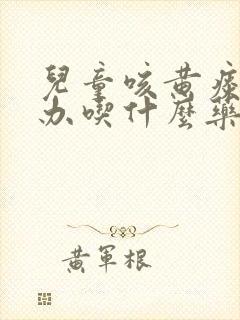 兒童咳黃痰
办喫什麼藥
黃軍根